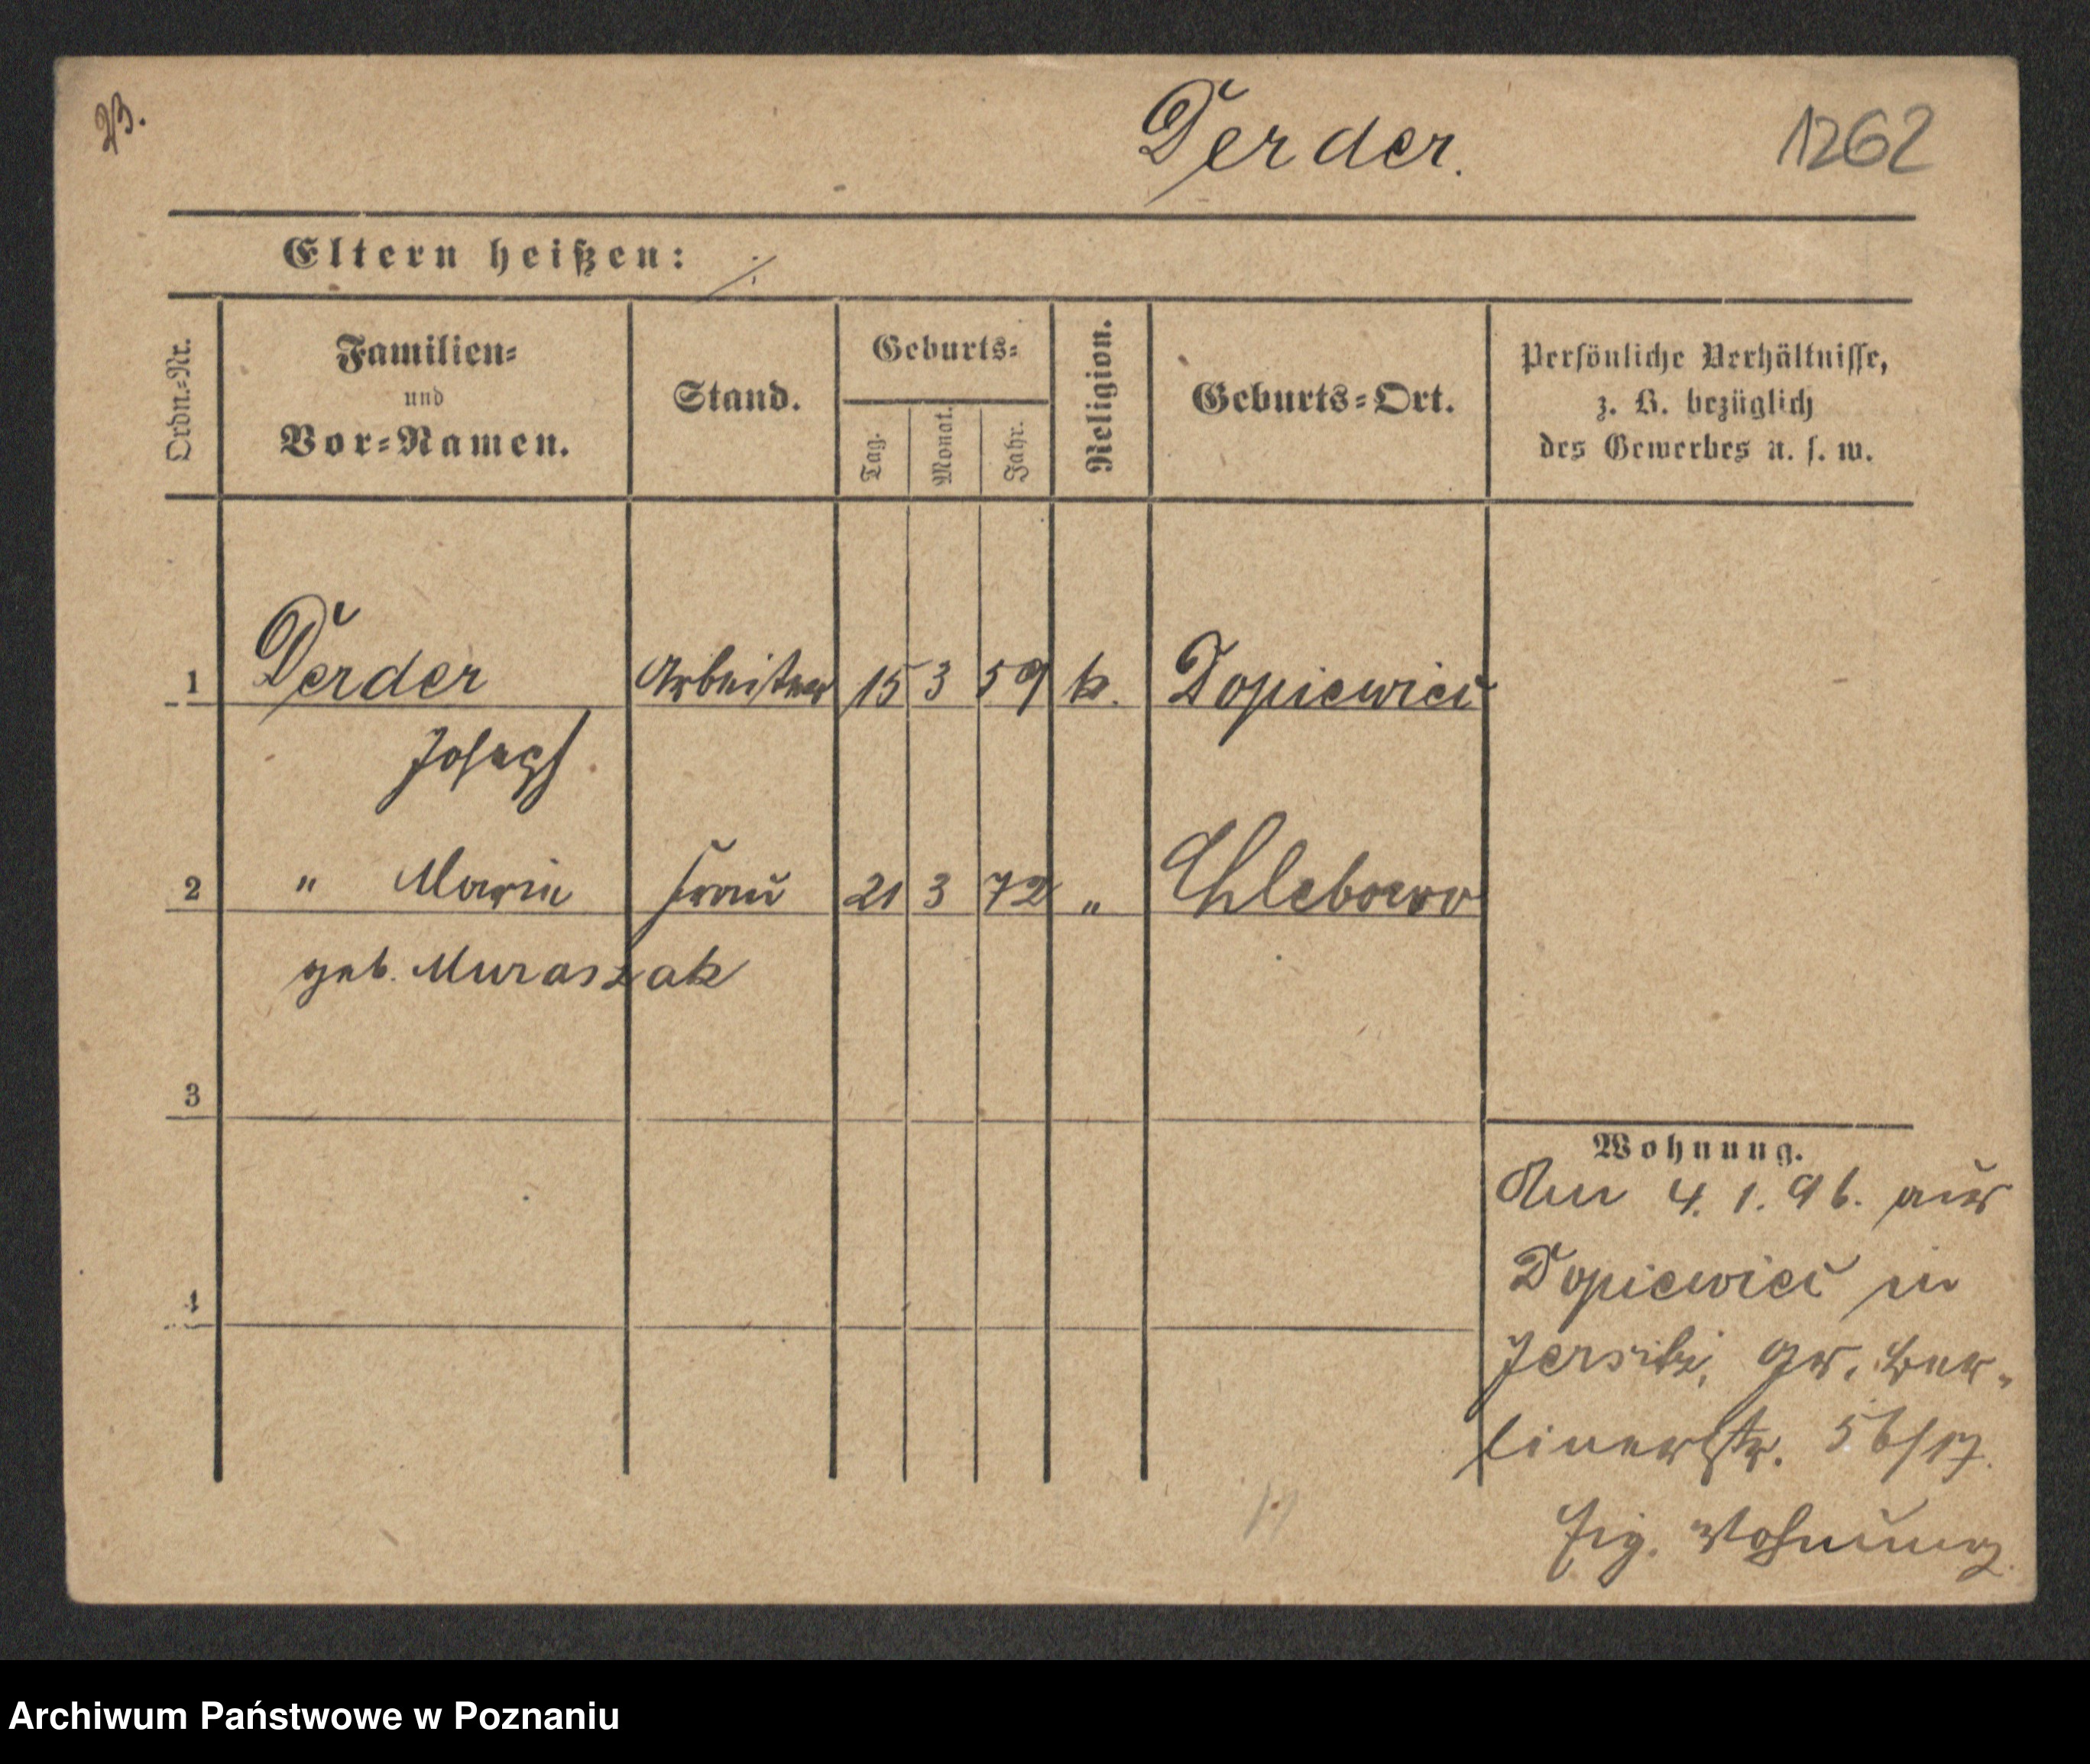 23.
Derder.
1262
Eltern heißen: ./.
Ordn.=Nr.
Familien=
und
Vor=Namen.
Stand.
Geburts=
Tag.
Monat.
Jahr.
Religion.
Geburts=Ort.
Persönliche Verhältnisse,
z. B. bezüglich
des Gewerbes u. s. w.
1 Derder Arbeiter 15 3 59 k. Dopiewiec
Joseph.
2 " Maria Frau 21 3 72 " Chlebowo
geb. Muraszak
3
4
Wohnung.
Am 4. 1. 96. aus
Dopiewiec in
Jersitz, Gr. Ber-
linerstr. 56/17.
Eig. Wohnung.
Archiwum Państwowe w Poznaniu